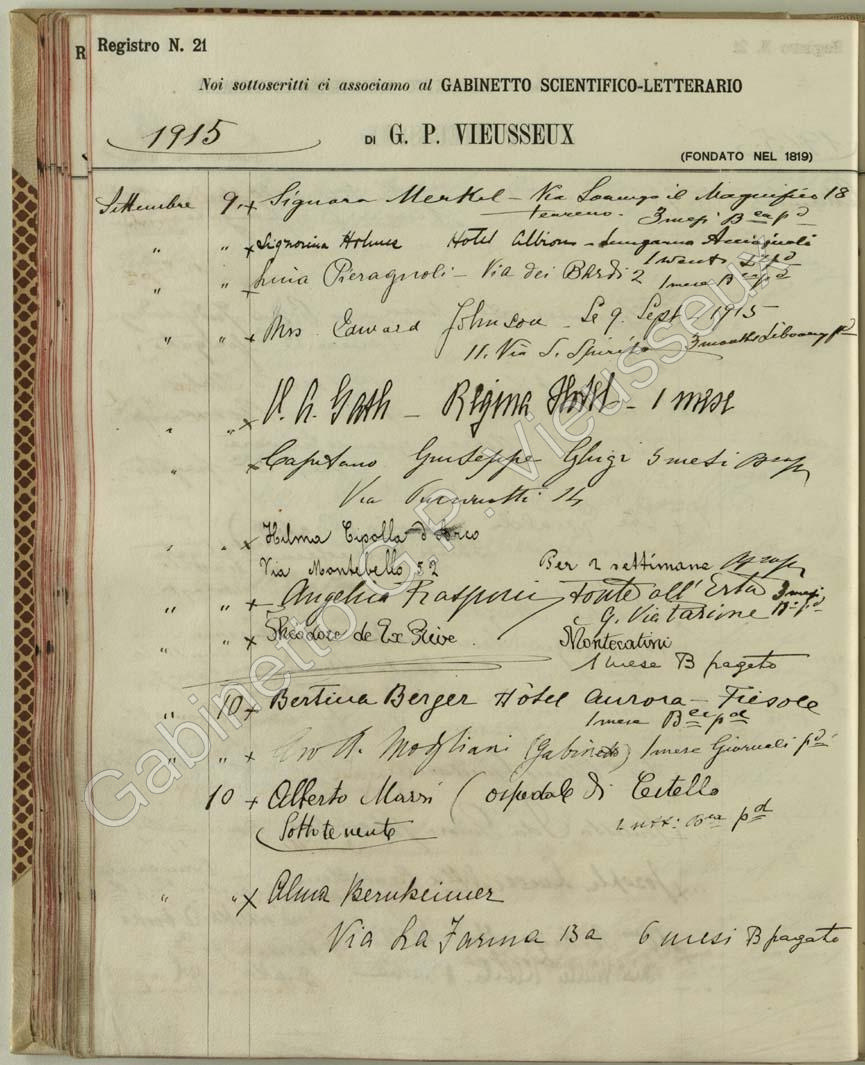 R
Registro N. 21
Noi sottoscritti ci associamo al GABINETTO SCIENTIFICO-LETTERARIO
1915
DI G. P. VIEUSSEUX
(FONDATO NEL 1819)
Settembre 9. x Signora Merkel - Via Lorenzo il Magnifico 18
terreno. 3 mesi B
" " x Signorina Holmes Hotel Albion - Lungarno Acciajuoli
1
" " x Pieragnoli - Via dei Bardi 2 1 mese B
" " x Mrs. Edward Johnson - Le 9. Sept. 1915
11. Via S. Spirito - 3 months Library pd
" " x Gath - Regina Hotel - 1 mese
" x Capitano Giuseppe Ghigi 3 mesi
Via 14
" " x Hilma Cipolla d'Arco
Via Montebello 52 Per 2 settimane
" " x Angelica Rasponi Fonte all'Erta 3 mesi
G. Viatarsine B pd
" " x Theodore de Montecatini
1 mese B pagato
" 10 x Bertina Berger Hôtel Aurora - Fiesole
1 mese B pd
" " x Modigliani (Gabinetto) 1 mese Giornali pd
10 x Alberto Marsi (ospedale di Castello
Sottotenente pd
" " x Alma Bernheimer
Via La Farina 13a 6 mesi B pagato
Gabinetto G.P. Vieusseux